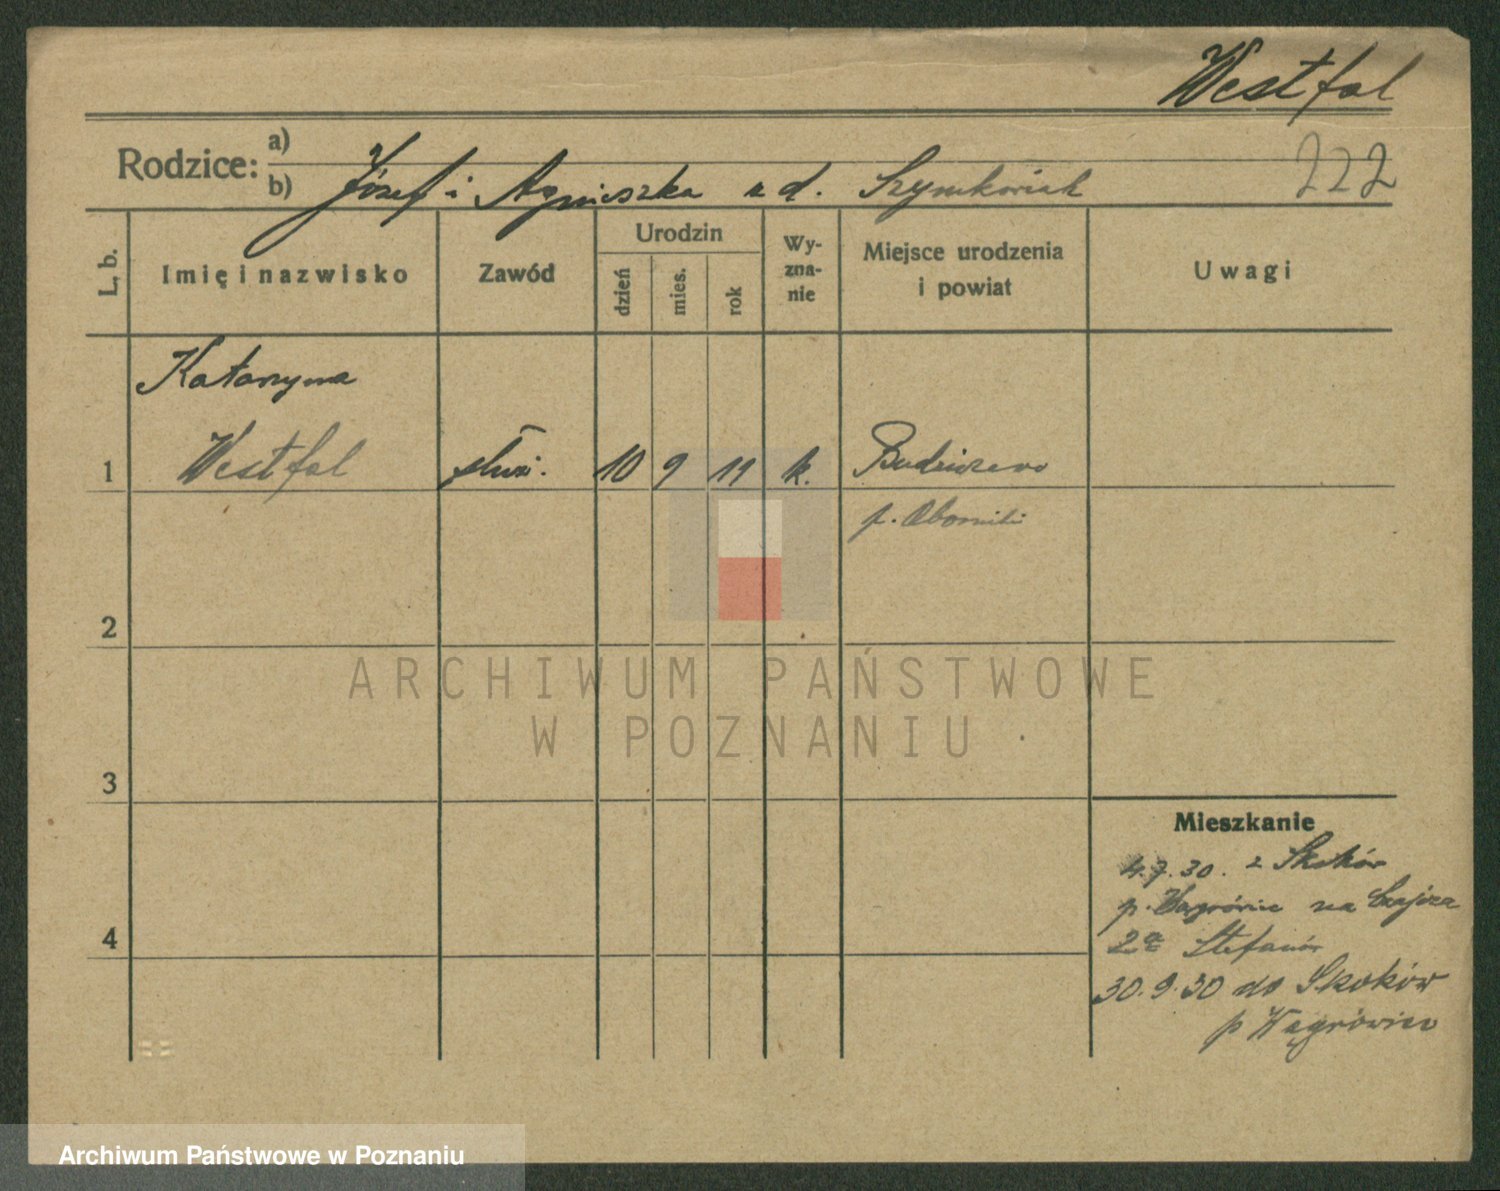 Westfal
Rodzice: a)
b) Józef i Agnieszka z d. Szymkowiak
222
L. b.
Imię i nazwisko
Zawód
Urodzin
dzień
mies.
rok
Wy-
zna-
nie
Miejsce urodzenia
i powiat
Uwagi
Katarzyna
1 Westfal służ. 10 9 11 k. Budziszewo
p. Oborniki
2
3
4
Mieszkanie
4.7.30. z Skoków
p. Wągrówiec na
2a Stefanów
30.9.30 do Skoków
p Wągrówiec
ARCHIWUM PAŃSTWOWE
W POZNANIU
Archiwum Państwowe w Poznaniu